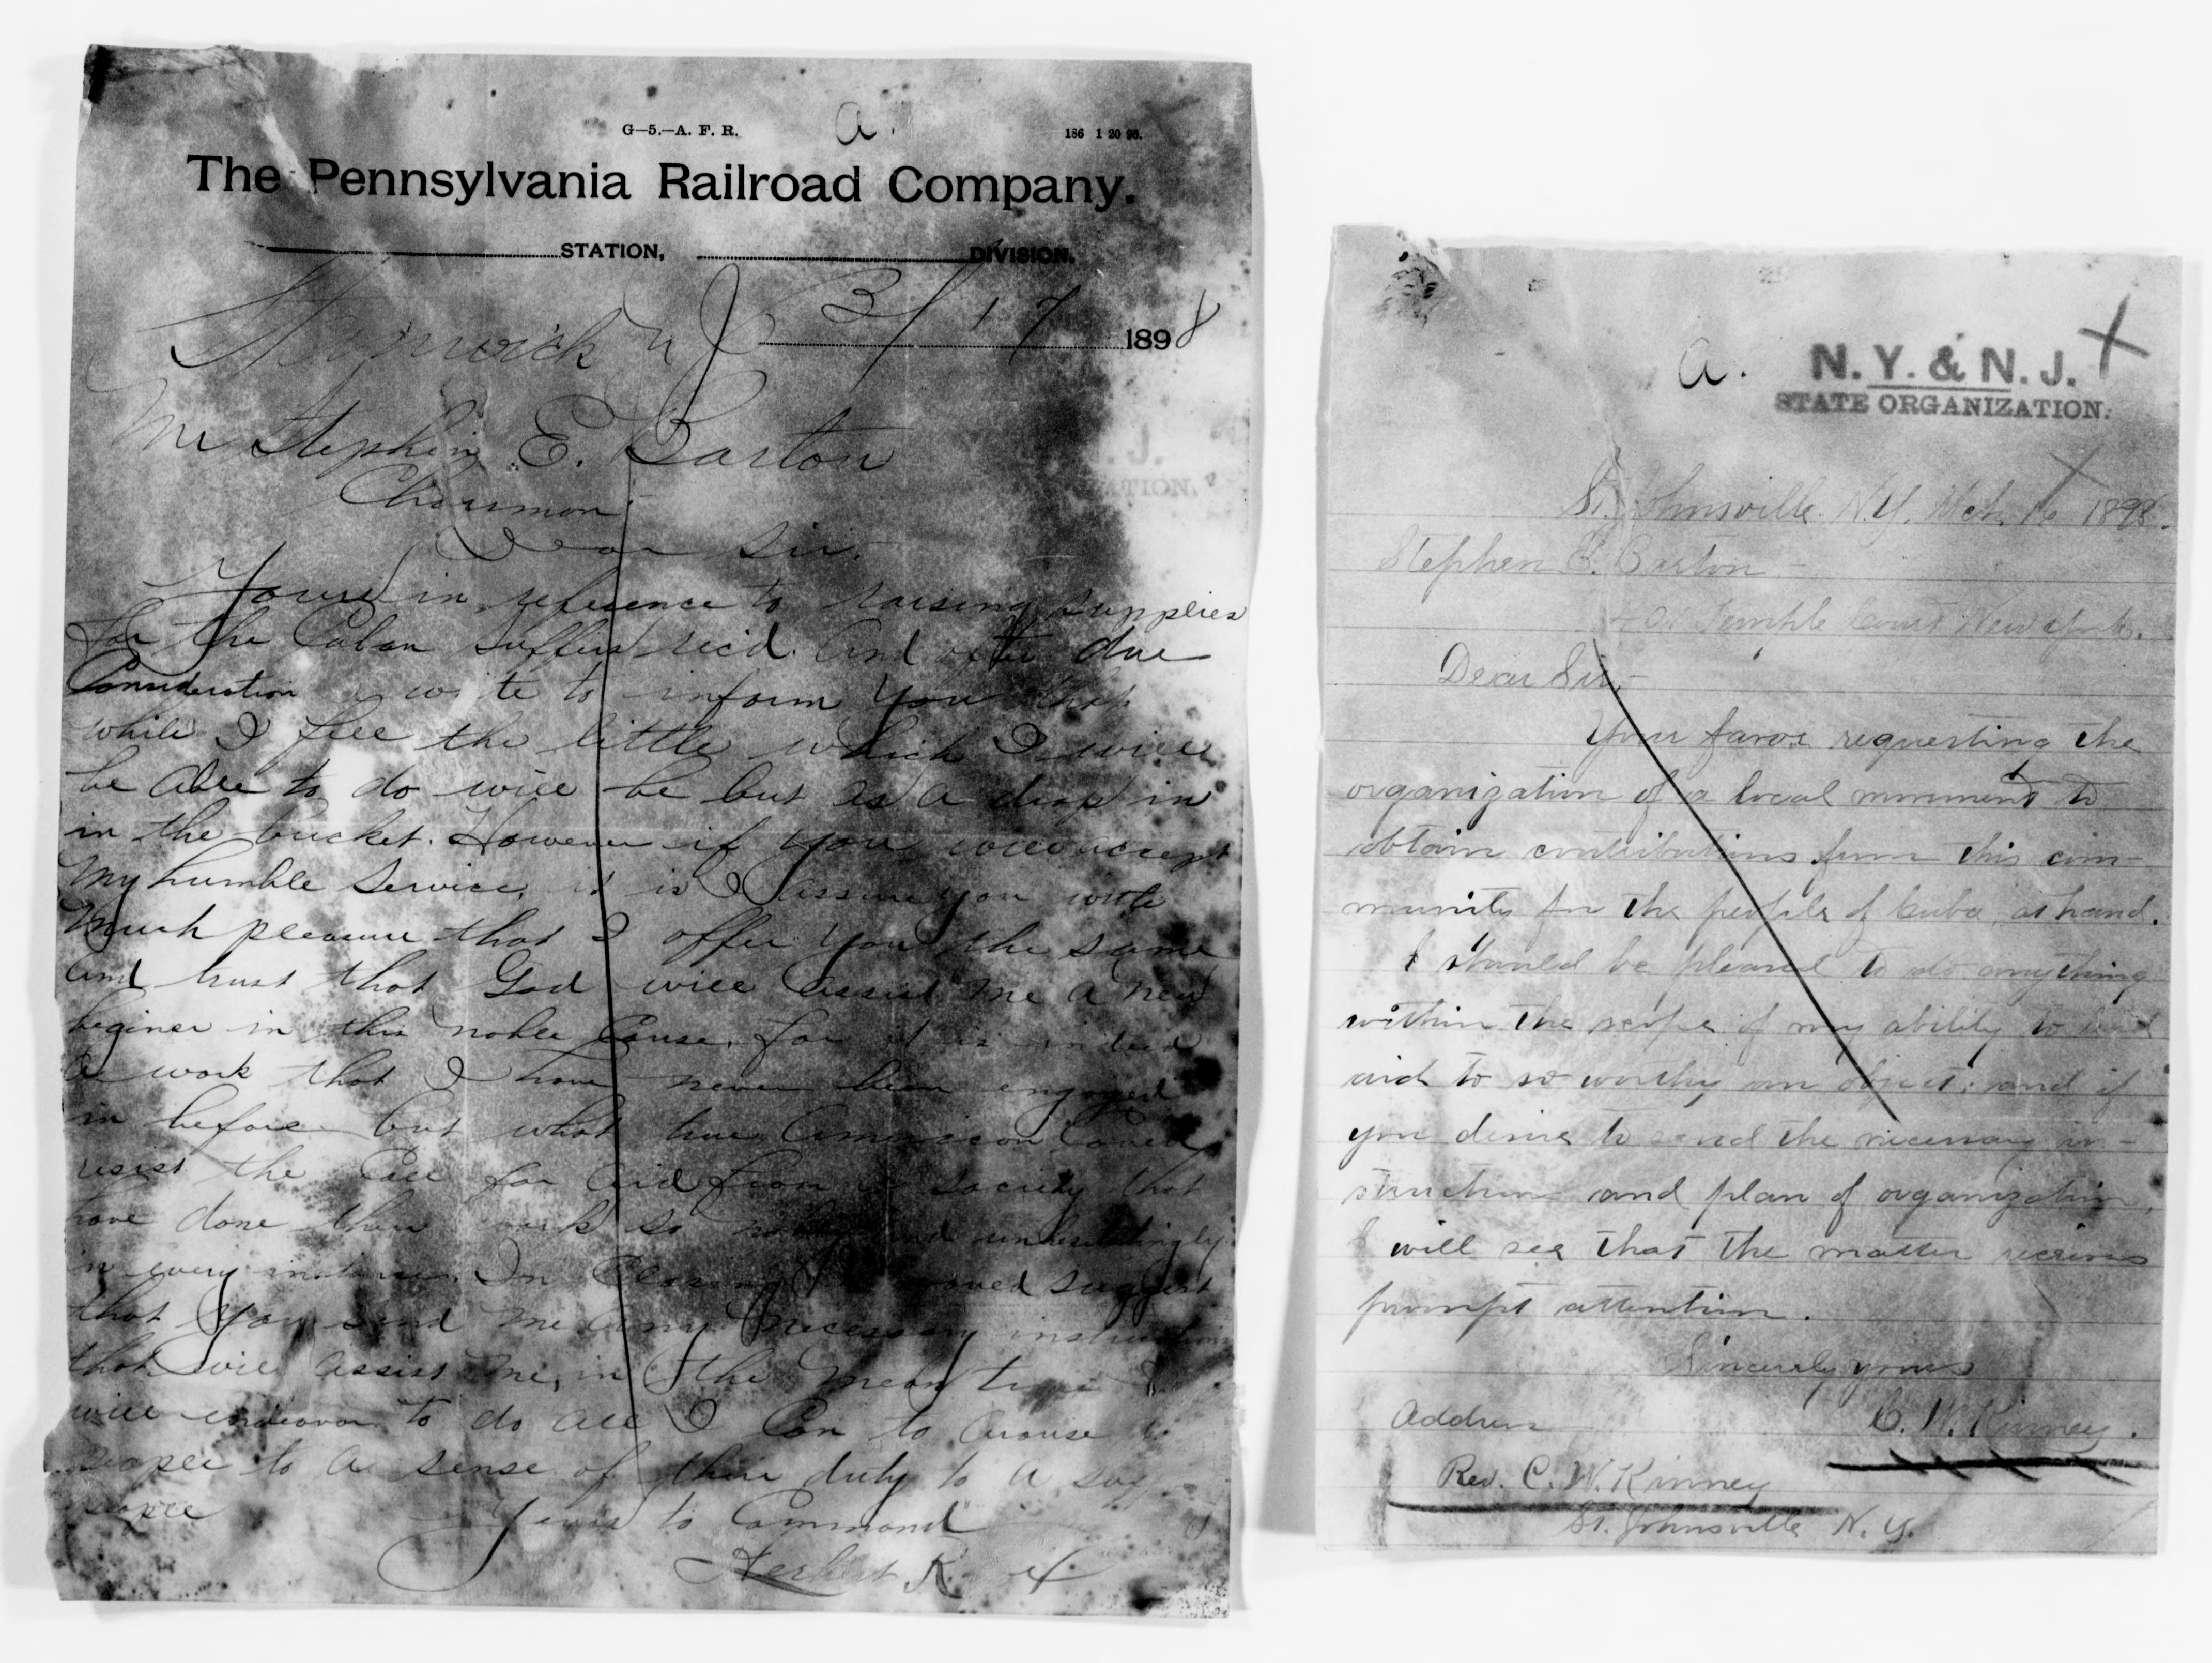 G-5.-A. F. R.
a.
186 1 20 98.
The Pennsylvania Railroad Company.
STATION, DIVISION.
N J 3/17 1898
Mr Stephen E. Barton
Chairman
Dear Sir.
Yours in reference to raising supplies
for the Cuban suffers rec'd. and after due
Consideration I write to inform you that
while I feel the little which I will
be able to do will be but as a drop in
in the bucket. However if you will accept
my humble service, it is I assure you with
much pleasure that I offer you the same
and trust that God will assist me a new
beginer in this noble cause, for it is indeed
a work that I have never been engaged
in before but what true American could
resist the Call for aid from a society that
have done their work so nobly and unhesitatingly
in every instance. In Closing I would suggest
that you send me any necessary instructions
that will assist me, in the mean time I
will endeavor to do all I can to arouse
people to a sense of their duty to a
people
Yours to Command
Herbert
N. Y. & N. J. X
STATE ORGANIZATION.
a.
St. Johnsville N.Y. Mch. 16 1898.
Stephen E. Barton
Temple Court New York.
Dear Sir,-
Your favor requesting the
organization of a local movement to
obtain contributions from this com-
munity for the people of Cuba, at hand.
I should be pleased to do anything
within the scope of my ability to lend
aid to so worthy an object; and if
you desire to send the necessary in-
structions and plan of organization,
I will see that the matter receives
prompt attention.
Sincerely yours
C. W. Kinney.
Address
Rev. C. W. Kinney
St. Johnsville N. Y.